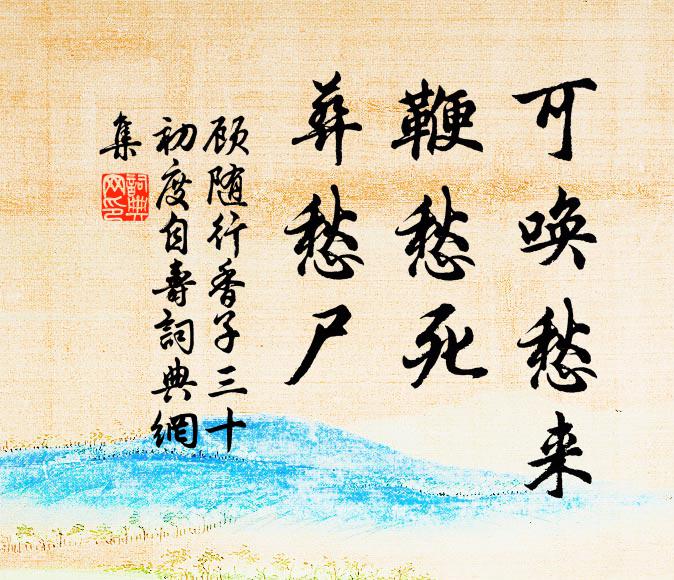 可唤愁来
鞭愁死
葬愁尸
顾随行香子三十
初度自壽詞典網
集
詞典
网印